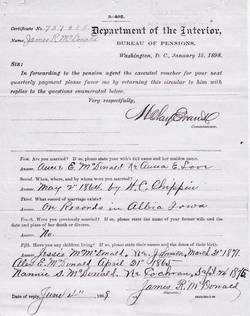 3-402.
Certificate No.
Name, James R McDonald
Department of the Interior,
BUREAU OF PENSIONS,
Washington, D. C., January 15, 1898.
SIR:
In forwarding to the pension agent the executed voucher for your next
quarterly payment please favor me by returning this circular to him with
replies to the questions enumerated below.
Very respectfully,
Commissioner.
First. Are you married? If so, please state your wife's full name and her maiden name.
Annie E. McDonald Ne Anna E. Love
Second. When, where, and by whom were you married?
May 2d 1864 by H.C. Chippin
Third. What record of marriage exists?
On Records in Albia Iowa
Fourth. Were you previously married? If so, please state the name of your former wife and the
date and place of her death or divorce.
No
Fifth. Have you any children living? If so, please state their names and the dates of their birth.
Jessie McDonald, Ne Johnson March 21st 1871
McDonald April 21st 1865
Nannie S. McDonald, Ne Cochran, Sept 24 1875
Date of reply, June 4th, 1898
James R. McDonald